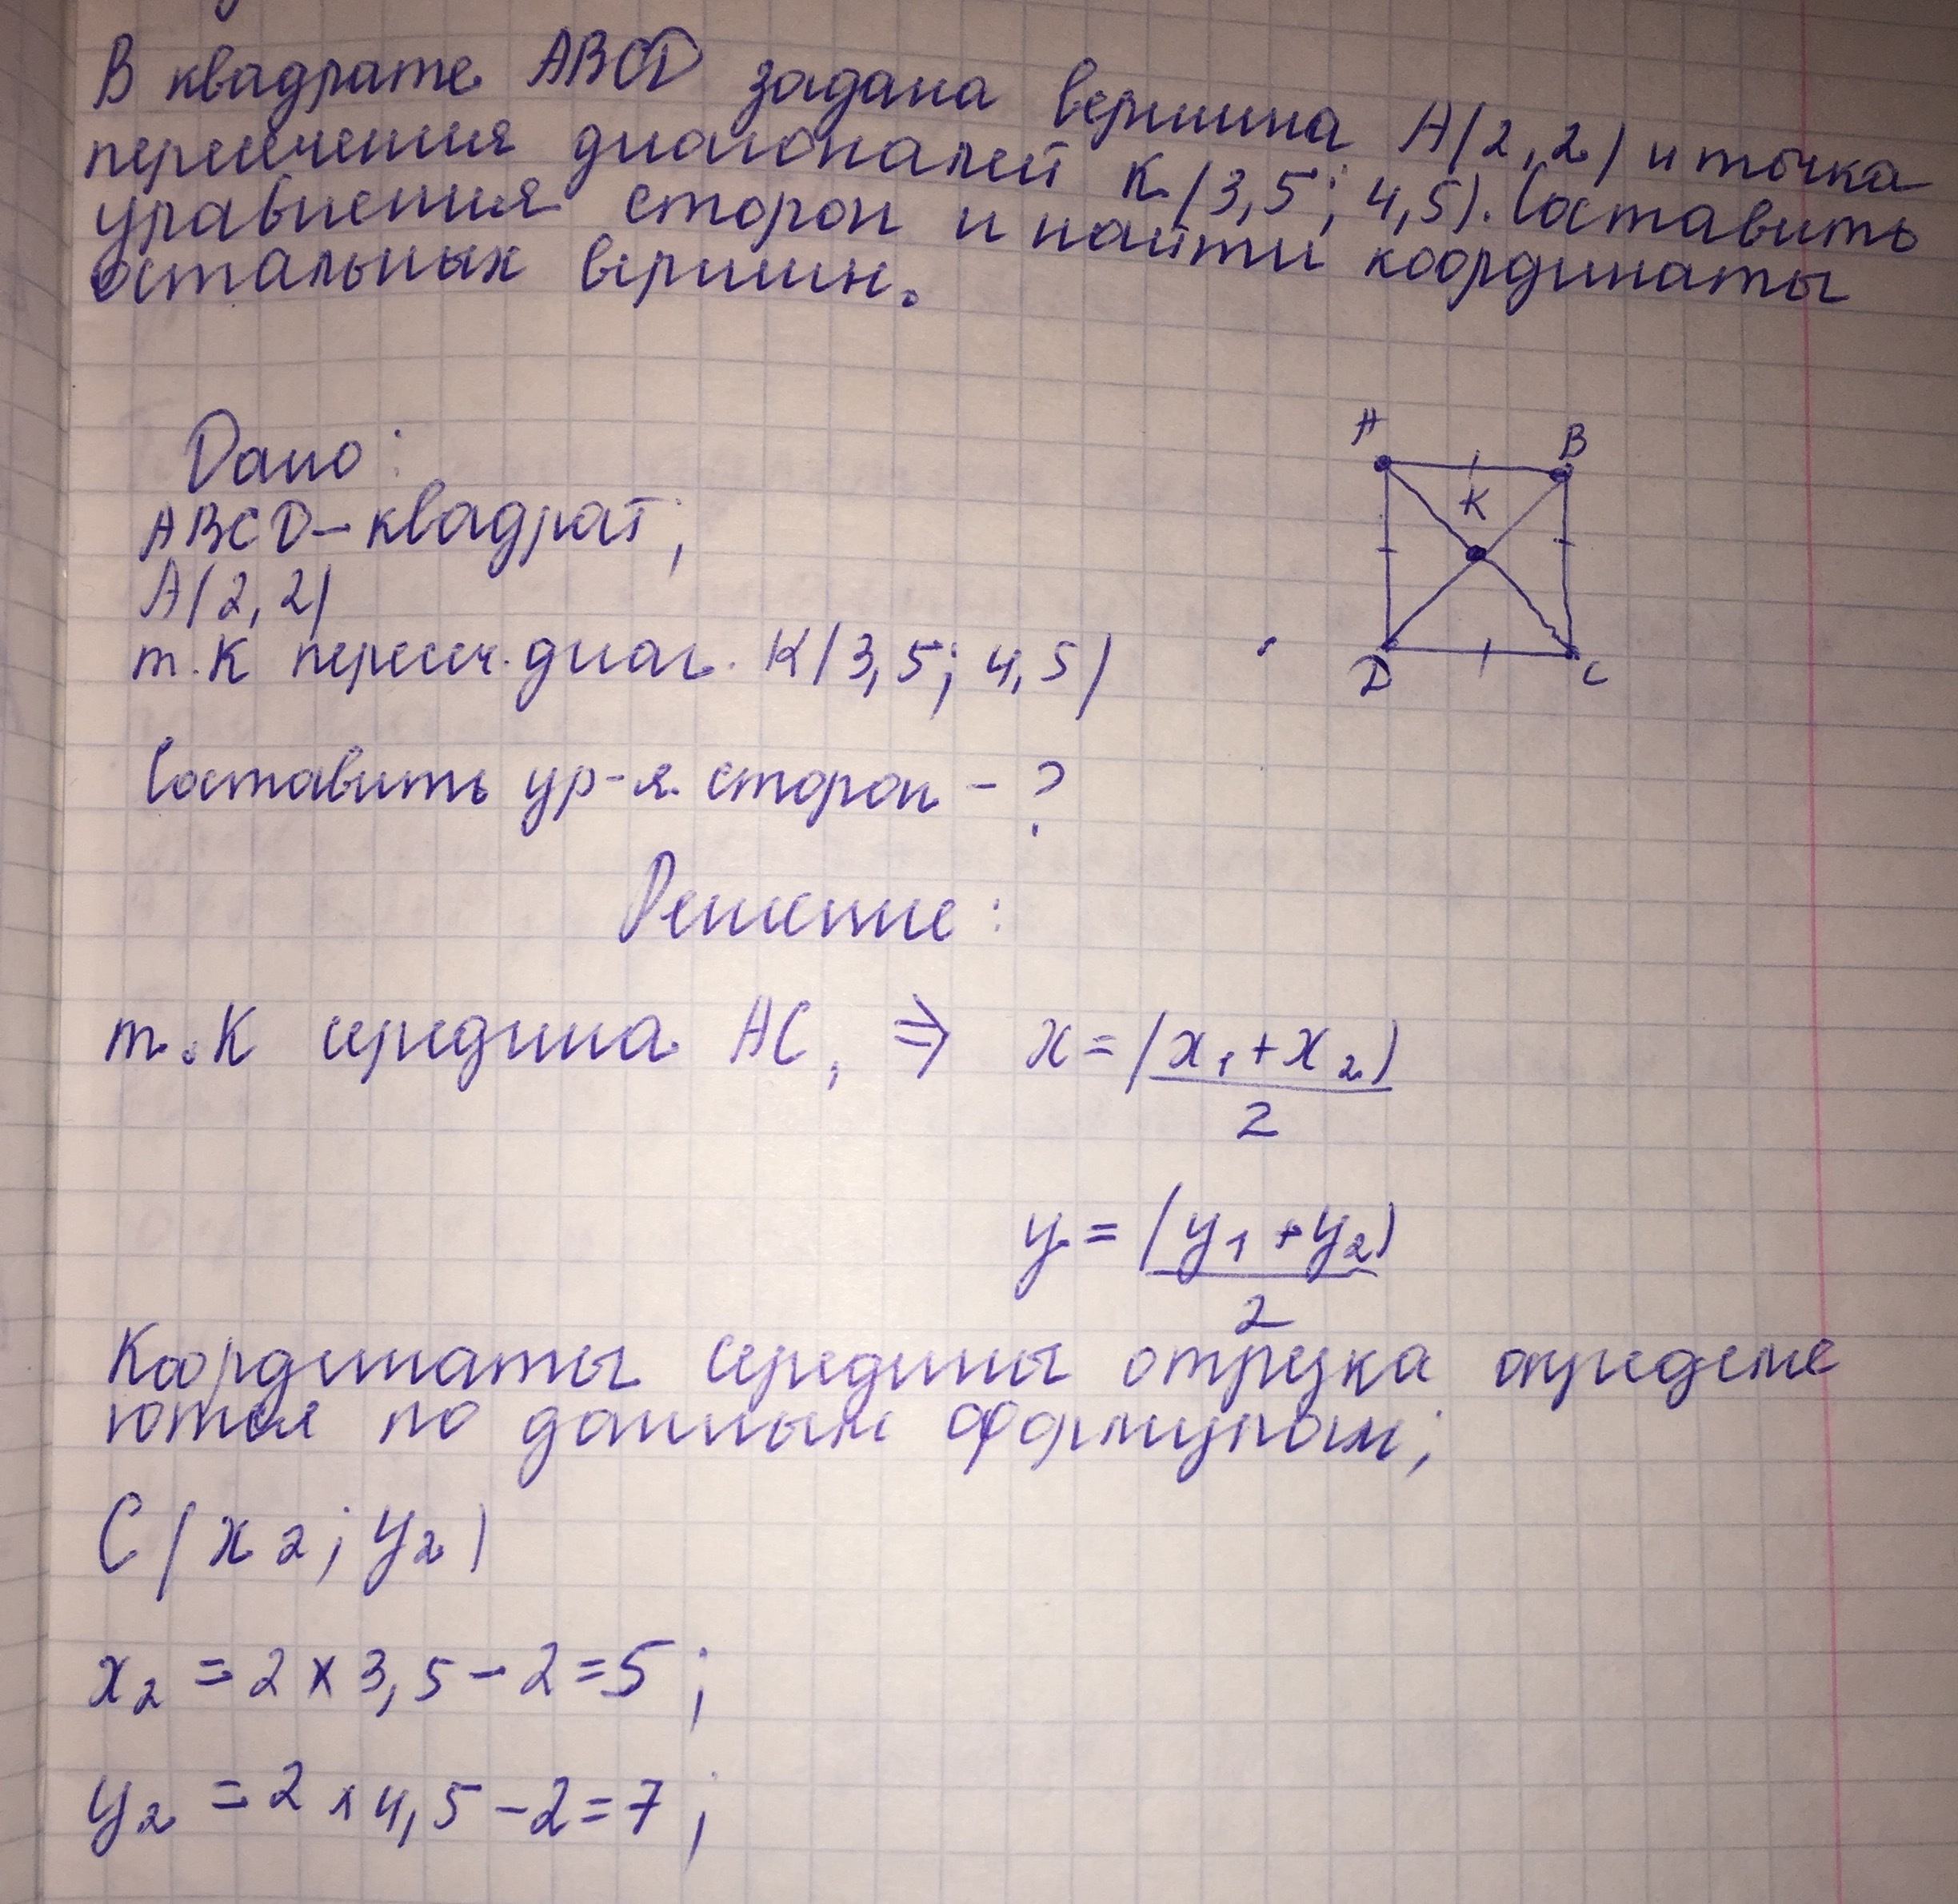 В квадрате ABCD задана вершина A(2,2) и точка
пересечения диагоналей K(3,5; 4,5). Составить
уравнения сторон и найти координаты
остальных вершин.
Дано:
ABCD - квадрат;
A(2,2)
т.К пересеч. диаг. K(3,5; 4,5)
Составить ур-я сторон - ?
A
B
K
D
C
Решение:
т.К середина AC, ⇒ x = (x₁ + x₂)/2
y = (y₁ + y₂)/2
Координаты середины отрезка определя
ются по данным формулам;
C(x₂; y₂)
x₂ = 2 × 3,5 - 2 = 5;
y₂ = 2 × 4,5 - 2 = 7;